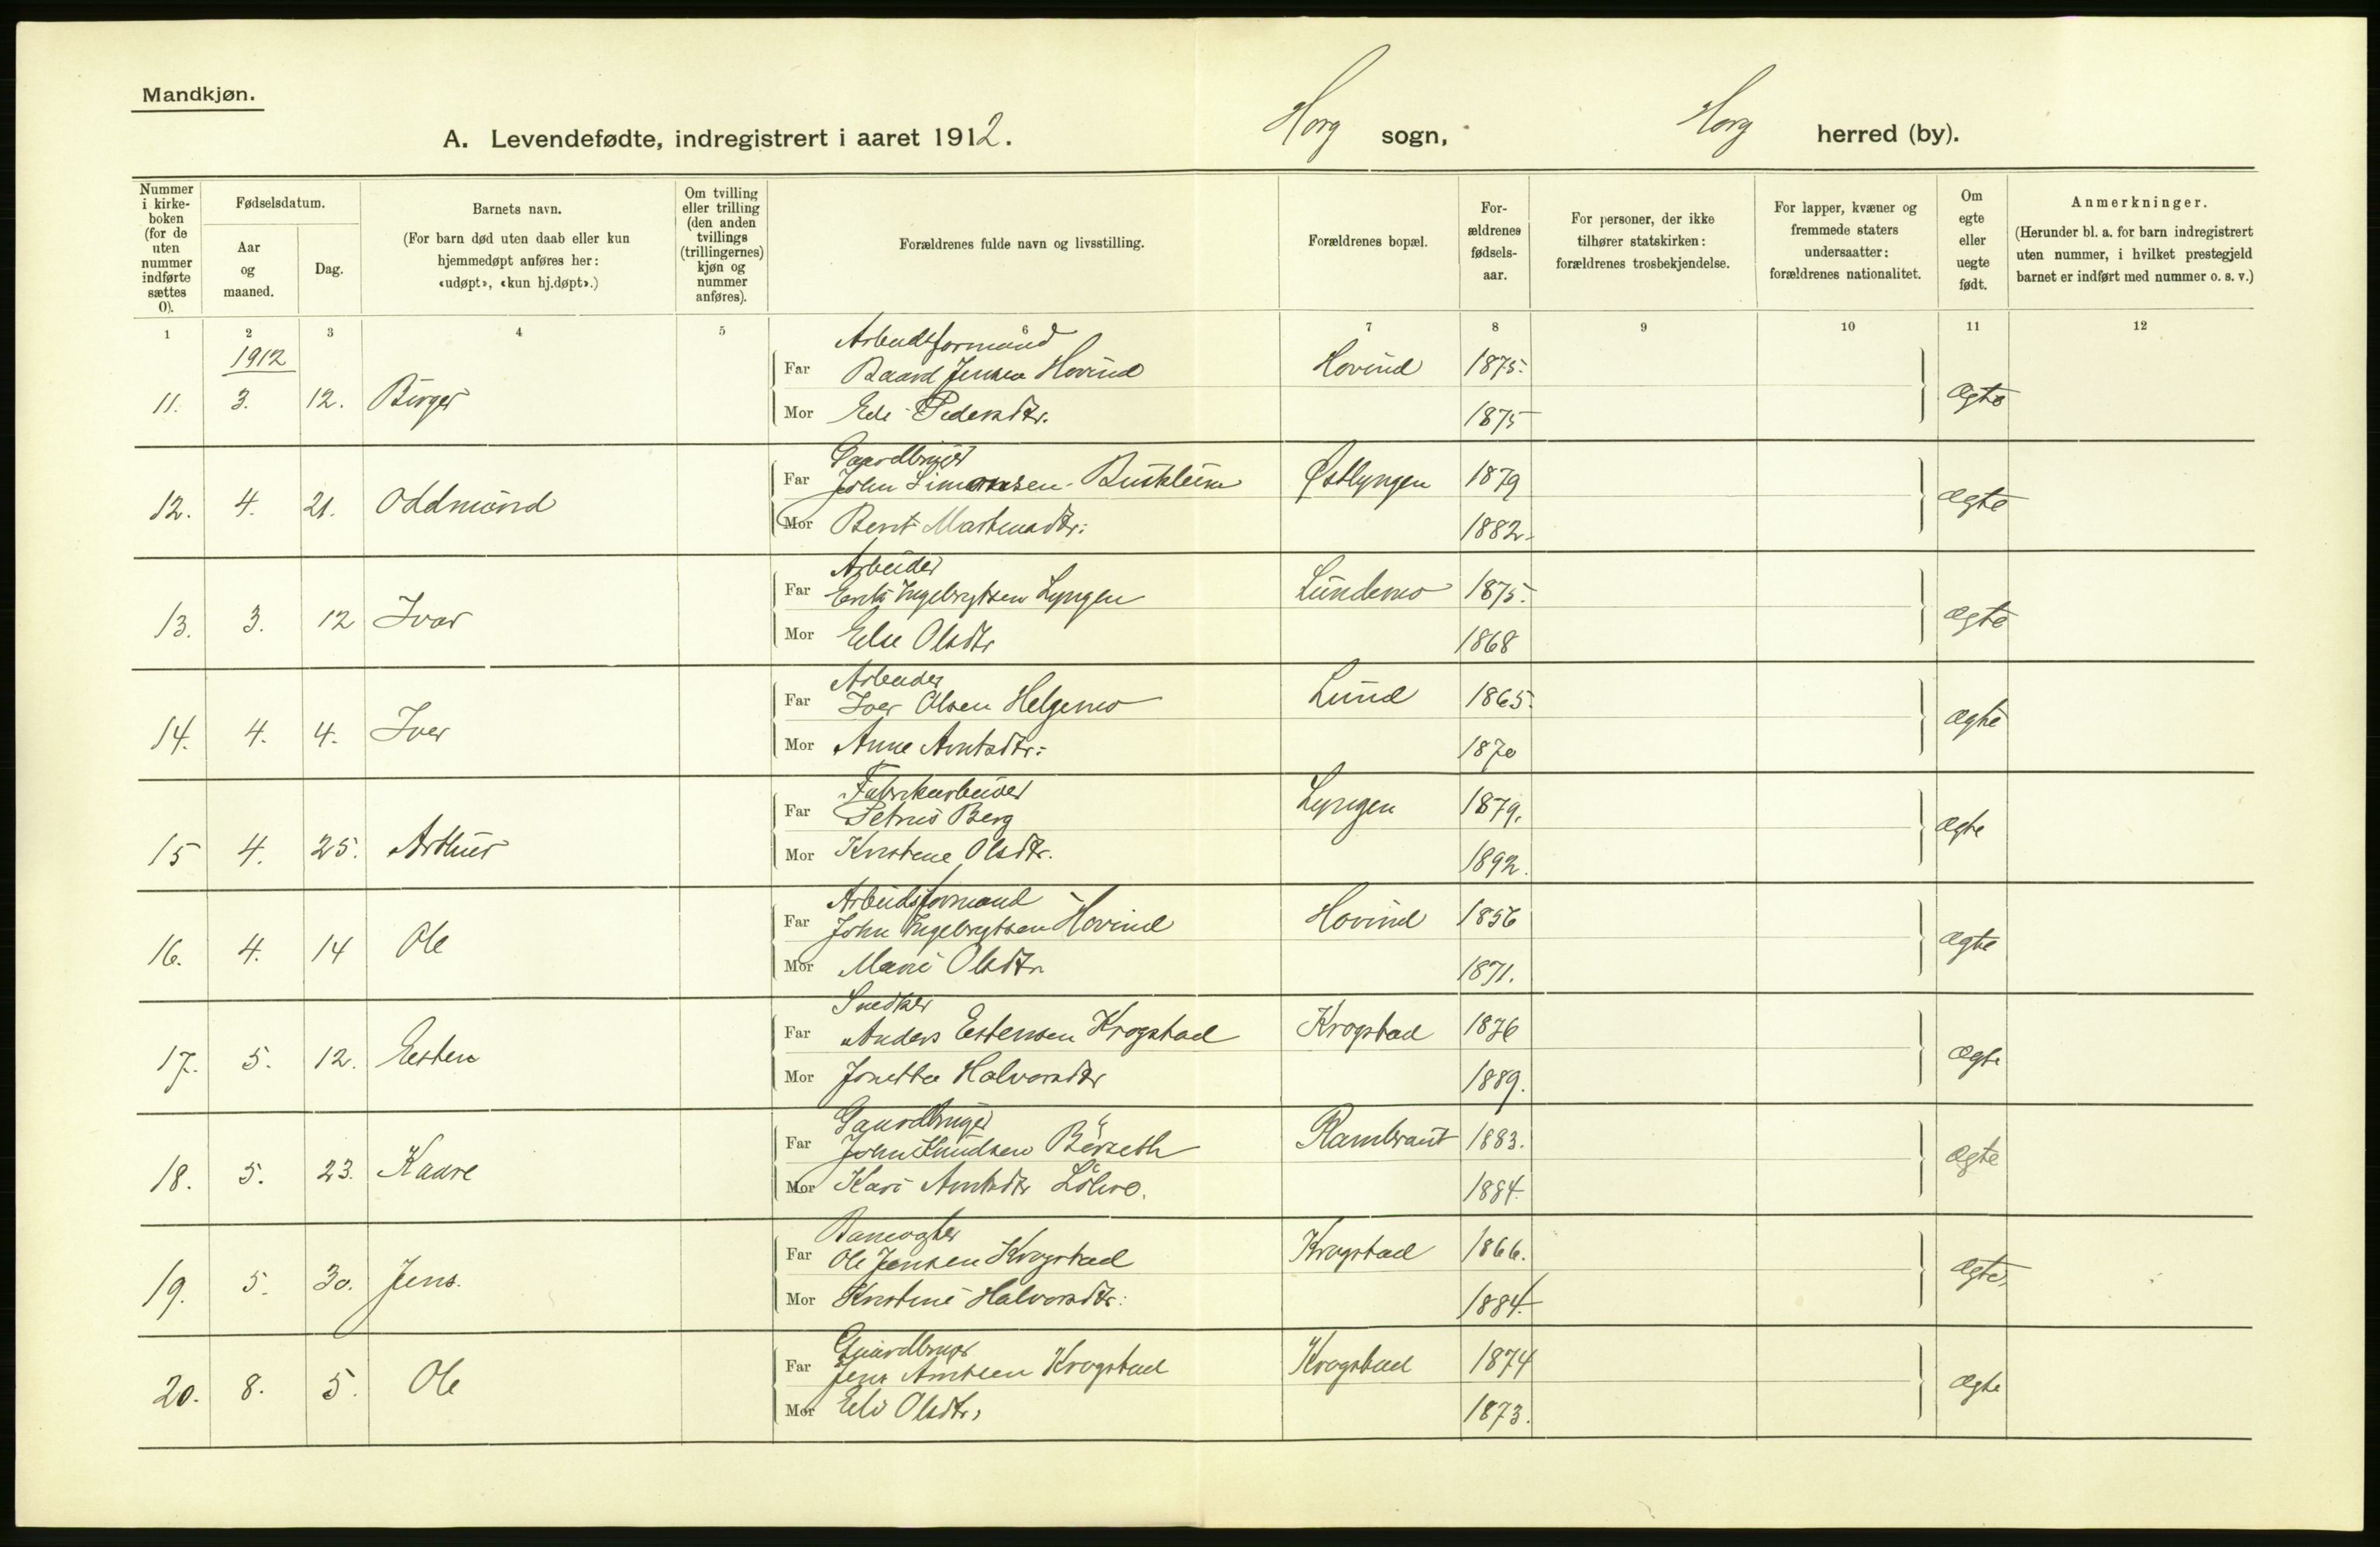 Mandkjøn.
A. Levendefødte, indregistrert i aaret 1912. Horg sogn, Horg herred (by).
Nummer i kirke-boken (for de uten nummer indførte sættes 0).
Fødselsdatum.
Aar og maaned.
Dag.
Barnets navn.
(For barn død uten daab eller kun hjemmedøpt anføres her: «udøpt», «kun hj.døpt».)
Om tvilling eller trilling (den anden tvillings (trillingernes) kjøn og nummer anføres).
Forældrenes fulde navn og livsstilling.
Forældrenes bopæl.
For-ældrenes fødsels-aar.
For personer, der ikke tilhører statskirken: forældrenes trosbekjendelse.
For lapper, kvæner og fremmede staters undersaatter: forældrenes nationalitet.
Om egte eller uegte født.
Anmerkninger.
(Herunder bl. a. for barn indregistrert uten nummer, i hvilket prestegjeld barnet er indført med nummer o. s. v.)
1 2 3 4 5 6 7 8 9 10 11 12
1912
Arbeidsformand
11. 3. 12. Birger Far Baard Jensen Hovind Hovind 1875. ægte
Mor Eli Pedersdtr. 1875
Gaardbruger
12. 4. 21. Oddmund Far John Simonsen Buskleim Østlyngen 1879 ægte
Mor Berit Martinusdtr. 1882.
Arbeider
13. 3. 12 Ivar Far Erik Ingebrigtsen Lyngen Lundemo 1875. ægte
Mor Else Olsdtr 1868
Arbeider
14. 4. 4. Iver Far Iver Olsen Helgemo Lund 1865. ægte
Mor Anne Arntsdtr: 1870
Fabrikarbeider
15 4. 25. Arthur Far Petrus Berg Lyngen 1879. ægte
Mor Kristine Olsdtr. 1892.
Arbeidsformand
16. 4. 14 Ole Far John Ingebrigtsen Hovind Hovind 1856 ægte
Mor Marie Olsdtr. 1871.
Snedker
17. 5. 12. Esten Far Anders Estensen Krogstad Krogstad 1876 ægte
Mor Jonetta Halvorsdtr 1889.
Gaardbruger
18. 5. 23. Kaare Far John Knudsen Børseth Rambraut 1883. ægte
Mor Kari Arntsdtr 1884.
Banevogter
19. 5. 30. Jens. Far Ole Jensen Krogstad Krogstad 1866. ægte
Mor Kristine Halvorsdtr. 1884.
Gaardbruger
20. 8. 5. Ole Far Jens Arntsen Krogstad Krogstad 1874 ægte
Mor Eli Olsdtr. 1873.